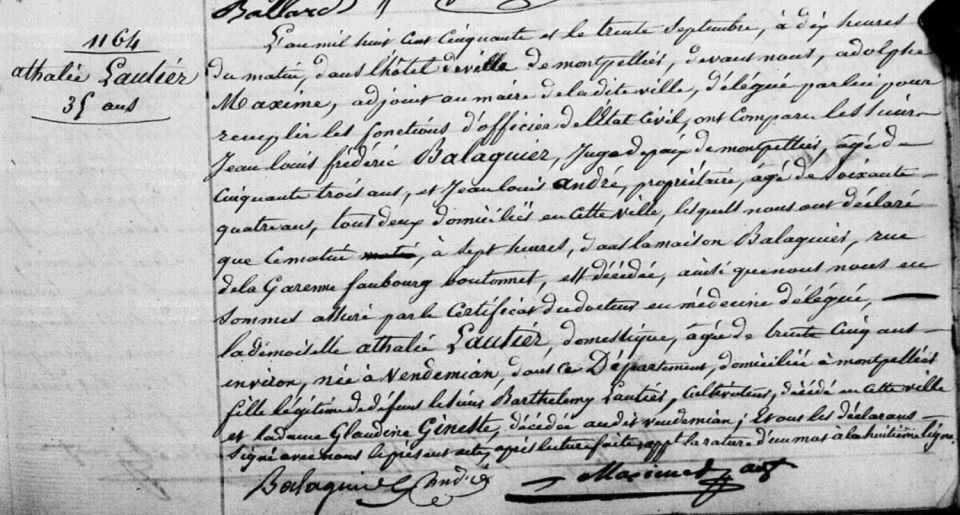 Ballard
1164
athalie Lautier
35 ans
L'an mil huit cent cinquante et le trente Septembre, à dix heures
du matin, dans l'hôtel de ville de montpellier, devant nous, adolphe
Maxime, adjoint au maire de la dite ville, délégué par lui pour
remplir les fonctions d'officier de l'État Civil, ont comparu les sieurs
Jean Louis frédéric Balaguier, Juge de paix de montpellier, âgé de
Cinquante trois ans, et Jean louis andré, propriétaire, âgé de soixante
quatre ans, tous deux domiciliés en cette ville, lesquels nous ont déclaré
que ce matin, à sept heures, dans la maison Balaguier, rue
de la Garenne faubourg boutonnet, est décédée, ainsi que nous nous en
Sommes assuré par le Certificat du docteur en médecine délégué,
la demoiselle athalie Lautier, domestique, âgée de trente cinq ans
environ, née à Vendemian, dans ce Département, domiciliée à montpellier
fille légitime de défunt le sieur Barthelemy Lautier, Cultivateur, décédé en cette ville
et la dame Glaudine Gineste, décédée audit vendemian; Et nous les déclarans
Signé avec nous le présent acte, après lecture faite, appt. la rature d'un mot à la huitième ligne.
Balaguier André Maxime adt